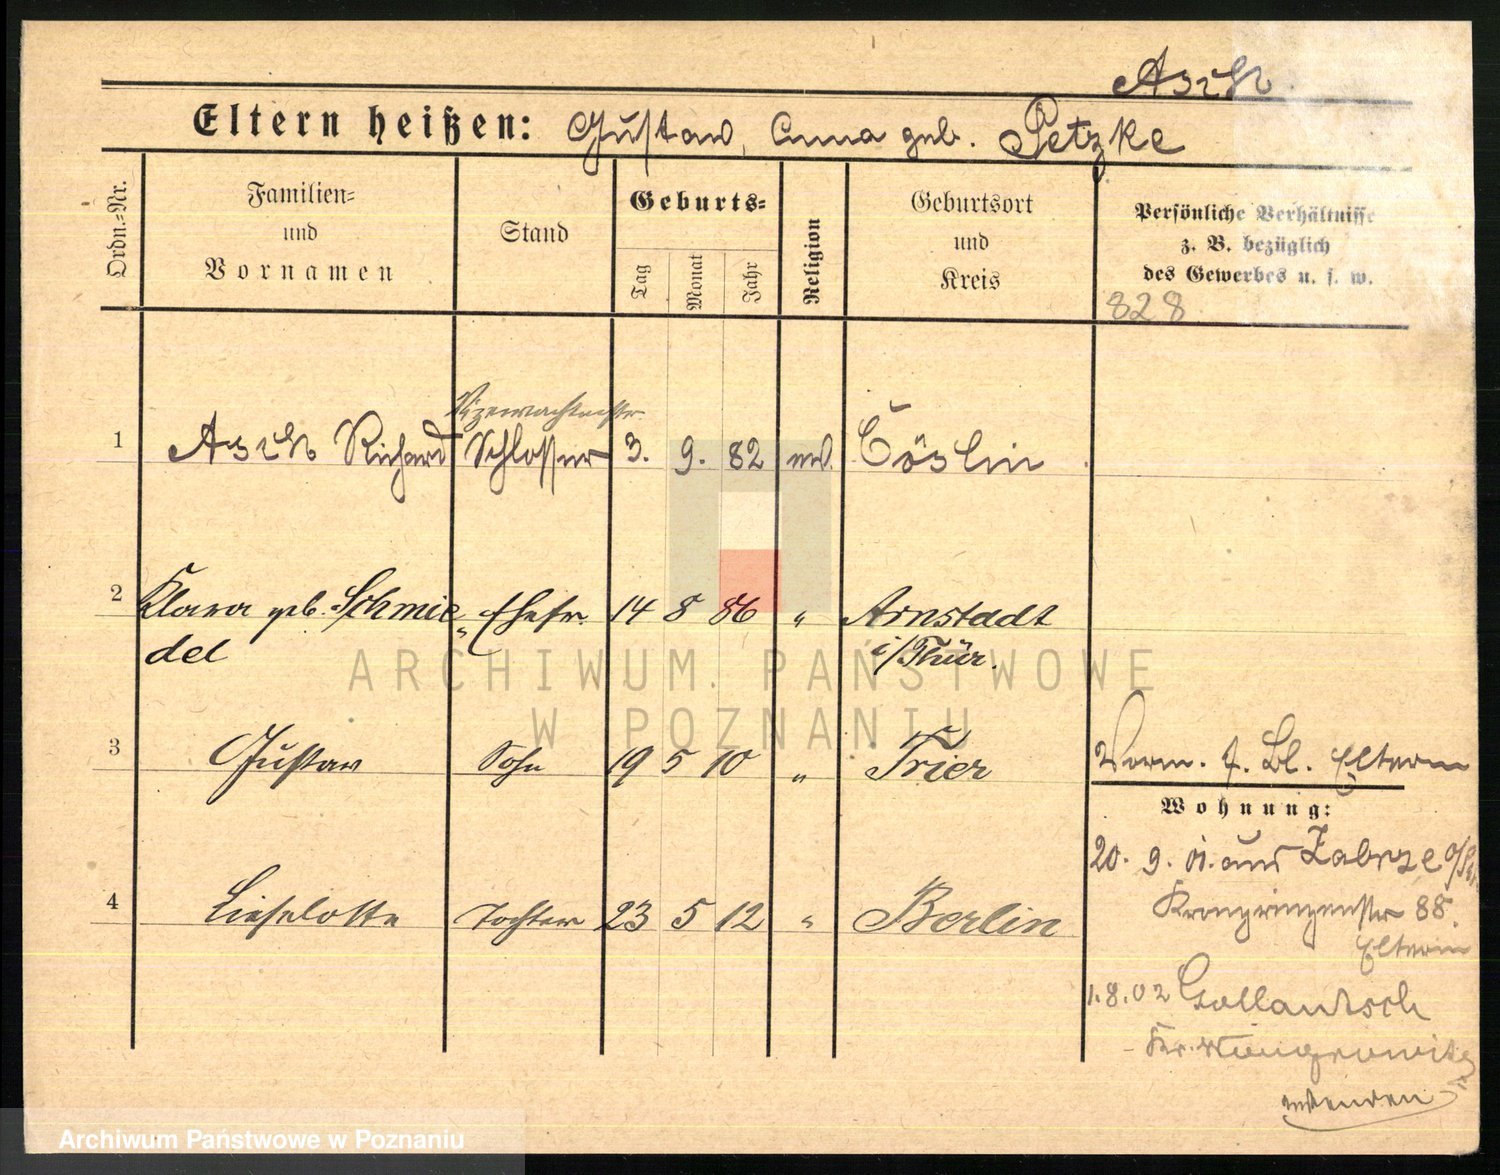 Eltern heißen: Gustav, Anna geb. Petzke
Ordn.=Nr.
Familien=
und
Vornamen
Stand
Geburts=
Tag
Monat
Jahr
Religion
Geburtsort
und
Kreis
Persönliche Verhältnisse
z. B. bezüglich
des Gewerbes u. s. w.
828
Vizewachtmstr.
1 Richard Schlosser 3. 9. 82 ev. Cöslin
2 Klara geb. Schmie= Ehefr. 14 8 86 " Arnstadt
del i/Thür.
3 Gustav Sohn 19 5 10 " Trier
Vorm. f. Bl. Eltern
Wohnung:
20. 9. 01. aus Zabrze
4 Lieselotte Tochter 23 5 12 " Berlin
Kronprinzenstr 88.
Eltern
1.8.02 Gollantsch
Kr. Wongrowitz
wenden
ARCHIWUM PAŃSTWOWE
W POZNANIU
Archiwum Państwowe w Poznaniu